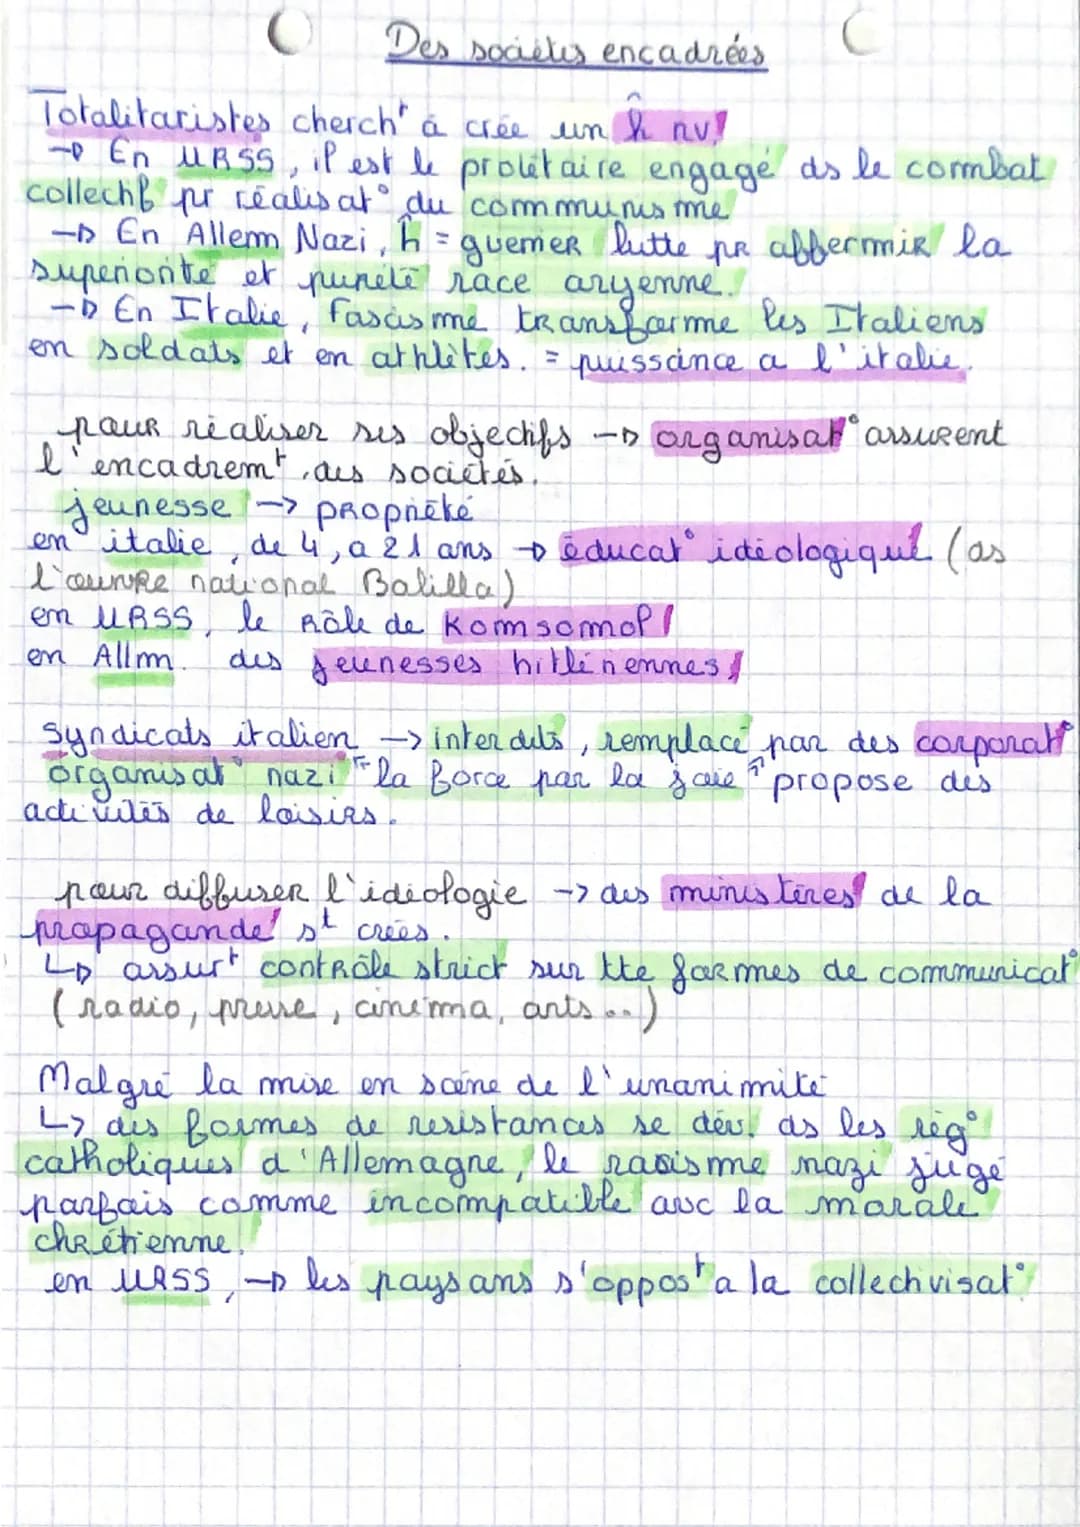 Des sociétés encadrées
Totalitaristes cherch^t à crée un ĥ nv.
→ En URSS, il est le prolétaire engagé ds le combat
collectif pr réalisat° du communisme
→ En Allem Nazi, ĥ = guerrier lutte pr affermir la
supériorité et pureté race aryenne.
→ En Italie, fascisme transforme les Italiens
en soldats et en athlètes. = puissance a l'italie.
pour réaliser ses objectifs → organisat° assurent
l'encadrem^t des sociétés.
jeunesse → propriété
en italie, de 4, a 21 ans → éducat° idéologique (ds
l'œuvre national Balilla)
en URSS, le rôle de Komsomol
en Allm. des jeunesses hitlériennes
Syndicats italien → interdits, remplacé par des corporat°
organisat° nazi "la force par la joie" propose des
activités de loisirs.
pour diffuser l'idéologie → des ministères de la
propagande s^t créés.
↳ assur^t contrôle strict sur tte formes de communicat°
(radio, presse, cinéma, arts...)
Malgré la mise en scène de l'unanimité
↳ des formes de resistances se dév. ds les rég°
catholiques d'Allemagne, le racisme nazi jugé
parfois comme incompatible avc la morale
chrétienne.
en URSS, → les paysans s'oppos^t a la collectivisat°